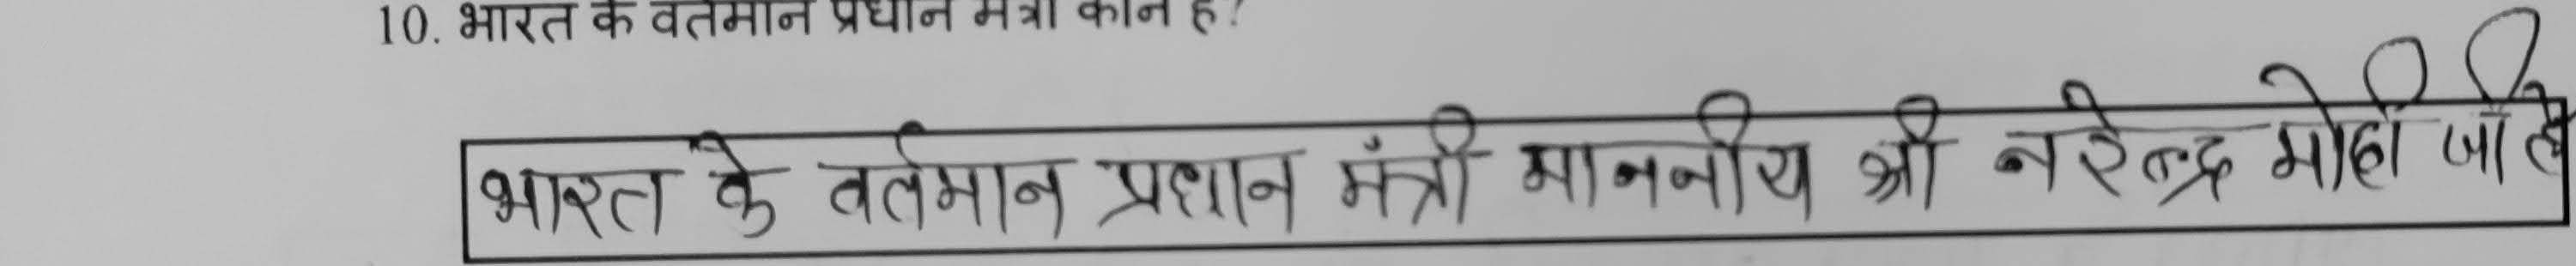 10. भारत के वर्तमान प्रधान मंत्री कौन है?
भारत के वर्तमान प्रधान मंत्री माननीय श्री नरेन्द्र मोदी जी है